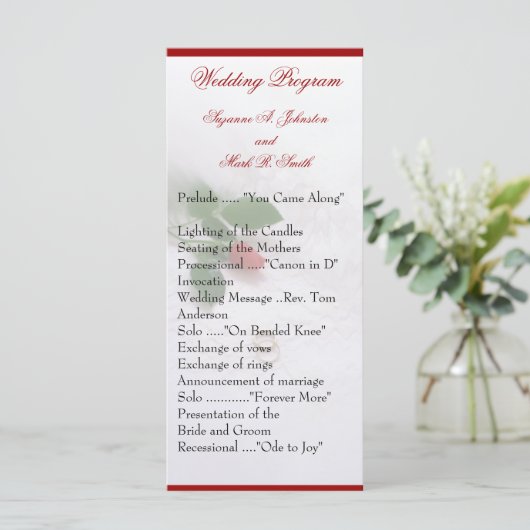 Wedding Program
Suzanne A. Johnston
and
Mark R. Smith
Prelude ..... "You Came Along"
Lighting of the Candles
Seating of the Mothers
Processional ....."Canon in D"
Invocation
Wedding Message ..Rev. Tom
Anderson
Solo ....."On Bended Knee"
Exchange of vows
Exchange of rings
Announcement of marriage
Solo ............"Forever More"
Presentation of the
Bride and Groom
Recessional ...."Ode to Joy"